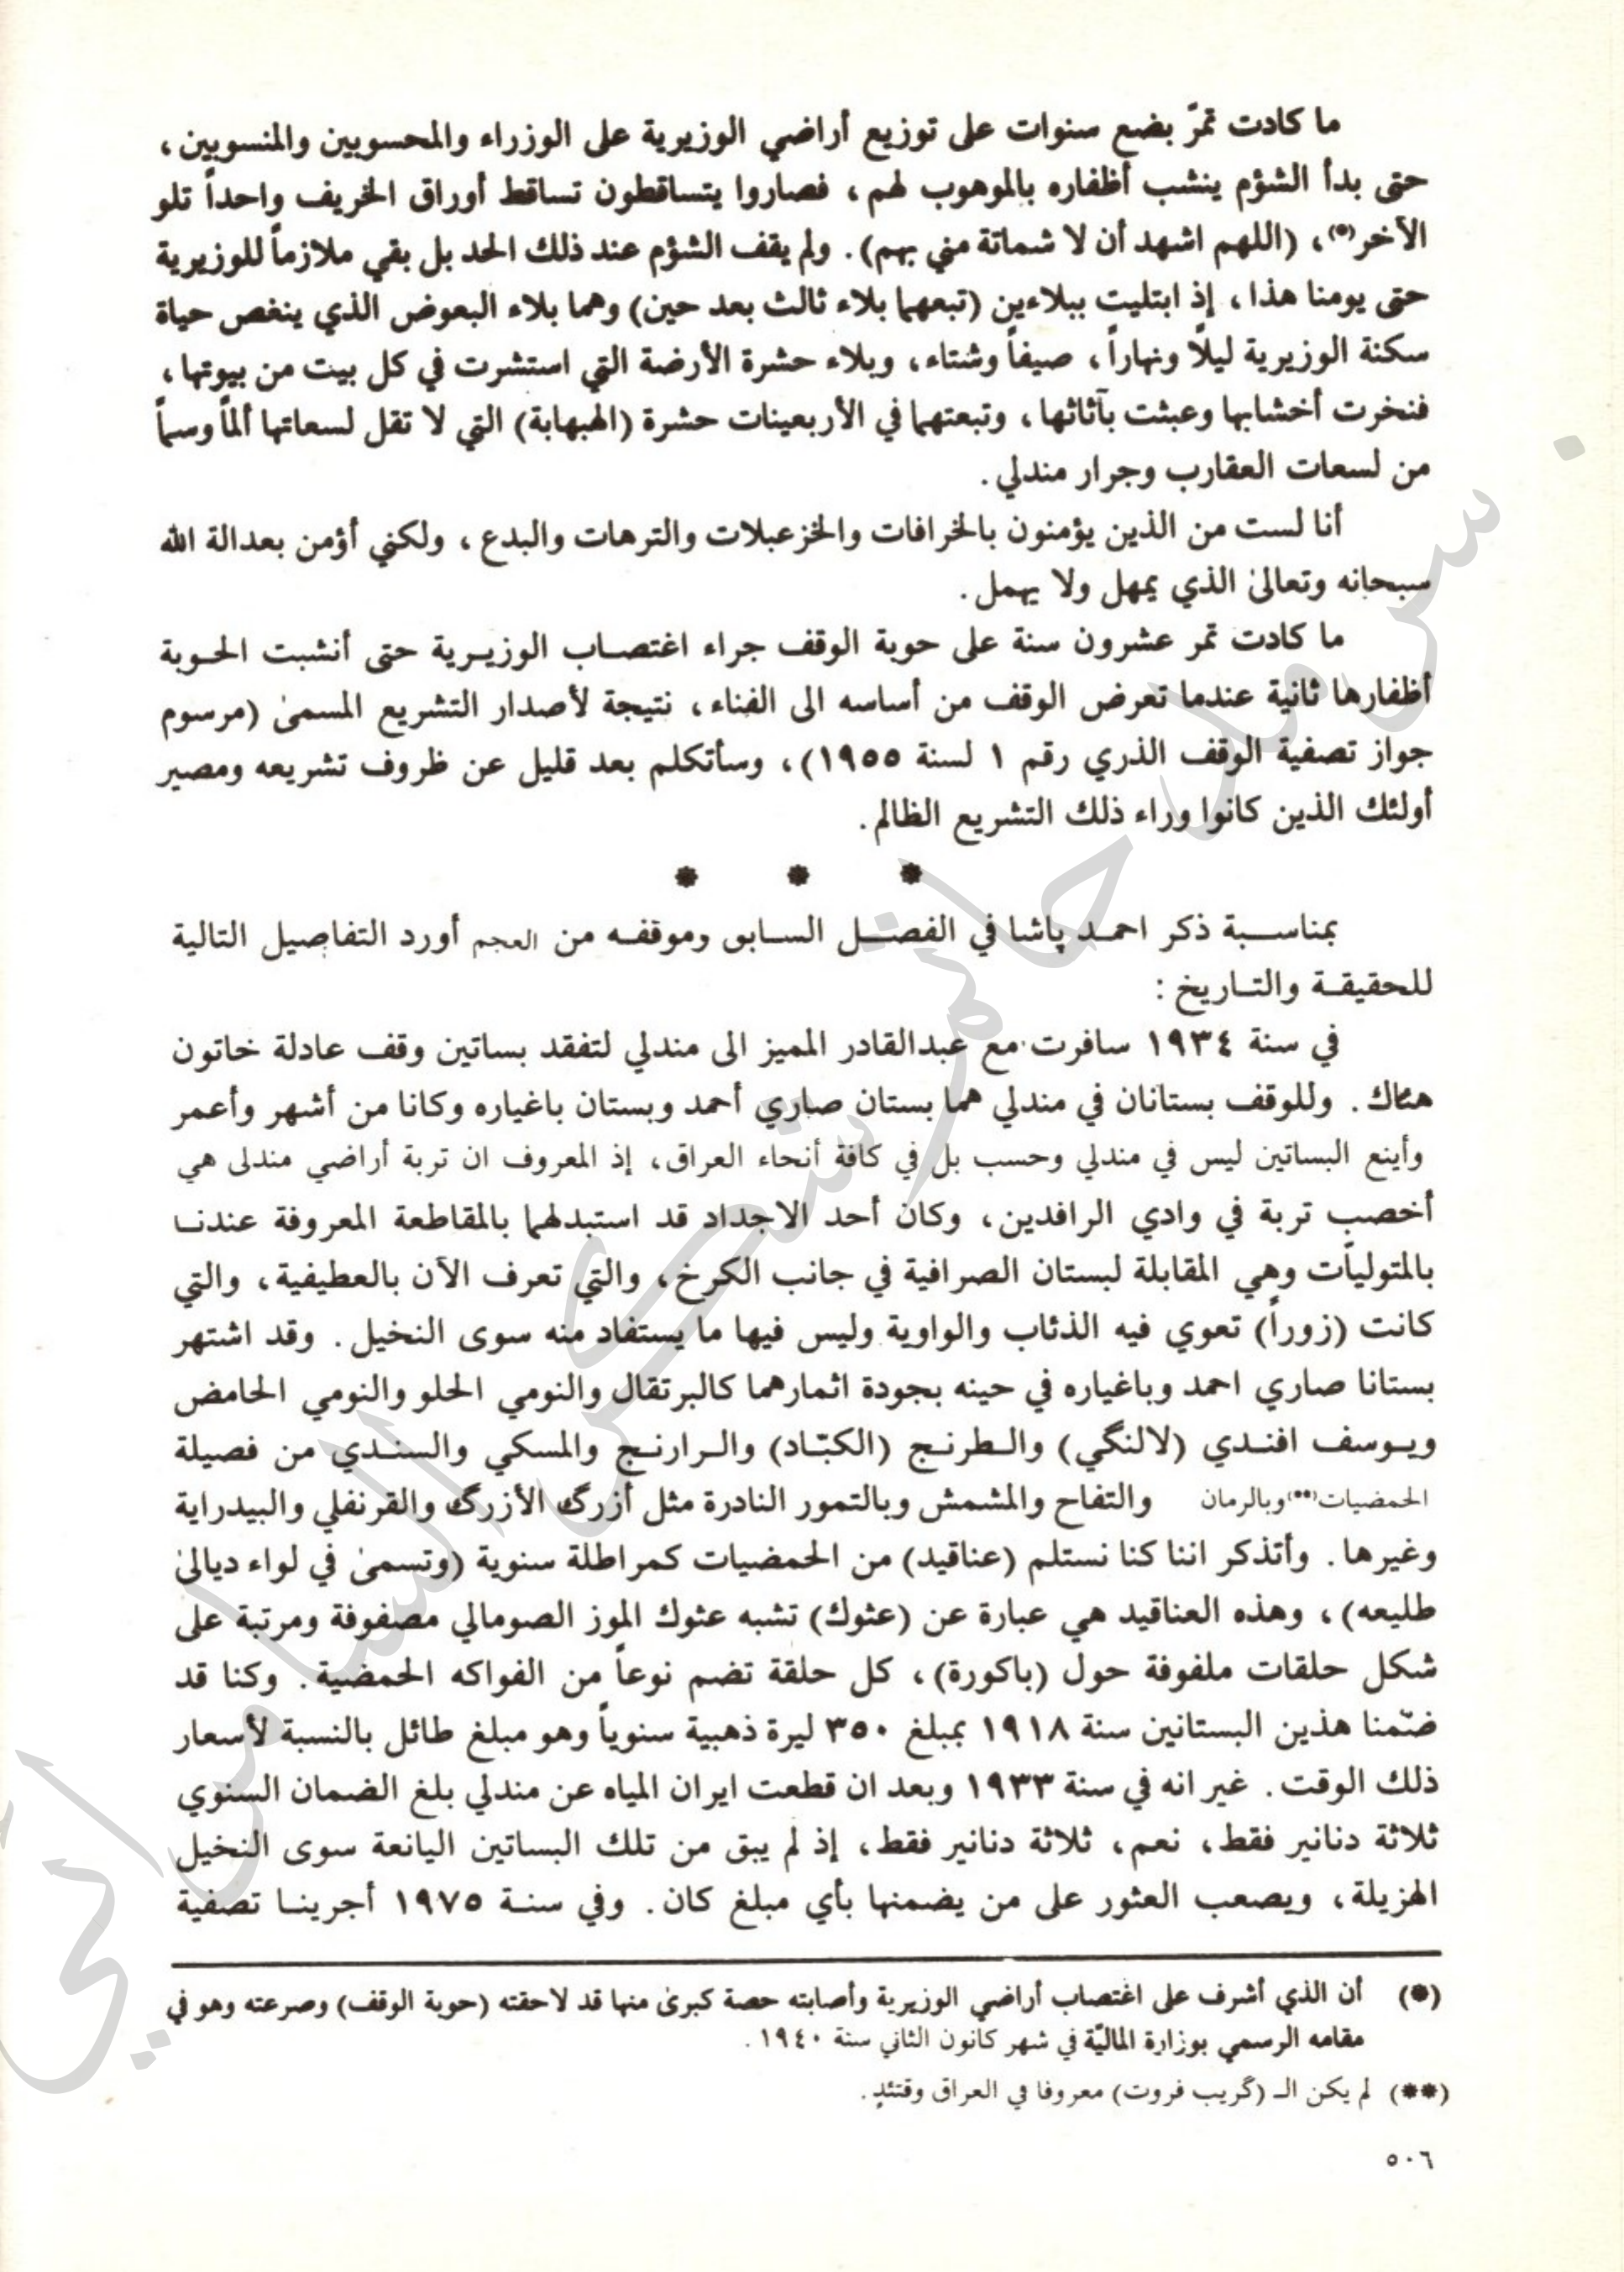 ما كادت تمرّ بضع سنوات على توزيع أراضي الوزيرية على الوزراء والمحسوبين والمنسوبين ،
حتى بدأ الشؤم ينشب أظفاره بالموهوب لهم ، فصاروا يتساقطون تساقط أوراق الخريف واحداً تلو
الأخر(*)، (اللهم اشهد أن لا شماتة مني بهم). ولم يقف الشؤم عند ذلك الحد بل بقي ملازماً للوزيرية
حتى يومنا هذا ، إذ ابتليت ببلاءين (تبعهما بلاء ثالث بعد حين) وهما بلاء البعوض الذي ينغص حياة
سكنة الوزيرية ليلاً ونهاراً ، صيفاً وشتاء ، وبلاء حشرة الأرضة التي استشرت في كل بيت من بيوتها ،
فنخرت أخشابها وعبثت بآثاثها ، وتبعتهما في الأربعينات حشرة (الهبهابة) التي لا تقل لسعاتها ألماً وسماً
من لسعات العقارب وجرار مندلي .
أنا لست من الذين يؤمنون بالخرافات والخزعبلات والترهات والبدع ، ولكني أؤمن بعدالة الله
سبحانه وتعالىٰ الذي يمهل ولا يهمل .
ما كادت تمر عشرون سنة على حوبة الوقف جراء اغتصاب الوزيرية حتى أنشبت الحوبة
أظفارها ثانية عندما تعرض الوقف من أساسه الى الفناء ، نتيجة لأصدار التشريع المسمىٰ (مرسوم
جواز تصفية الوقف الذري رقم ١ لسنة ١٩٥٥) ، وسأتكلم بعد قليل عن ظروف تشريعه ومصير
أولئك الذين كانوا وراء ذلك التشريع الظالم .
* * *
بمناسبة ذكر احمد پاشا في الفصل السابق وموقفه من العجم أورد التفاصيل التالية
للحقيقة والتاريخ :
في سنة ١٩٣٤ سافرت مع عبدالقادر المميز الى مندلي لتفقد بساتين وقف عادلة خاتون
هناك . وللوقف بستانان في مندلي هما بستان صاري أحمد وبستان باغياره وكانا من أشهر وأعمر
وأينع البساتين ليس في مندلي وحسب بل في كافة أنحاء العراق، إذ المعروف ان تربة أراضي مندلى هي
أخصب تربة في وادي الرافدين ، وكان أحد الاجداد قد استبدلهما بالمقاطعة المعروفة عندنا
بالمتوليّات وهي المقابلة لبستان الصرافية في جانب الكرخ ، والتي تعرف الآن بالعطيفية ، والتي
كانت (زوراً) تعوي فيه الذئاب والواوية وليس فيها ما يستفاد منه سوى النخيل . وقد اشتهر
بستانا صاري احمد وباغياره في حينه بجودة اثمارهما كالبرتقال والنومي الحلو والنومي الحامض
ويوسف افندي (لالنگي) والطرنج (الكبّاد) والرارنج والمسكي والسندي من فصيلة
الحمضيات(**) وبالرمان والتفاح والمشمش وبالتمور النادرة مثل أزرگ الأزرگ والقرنفلي والبيدراية
وغيرها . وأتذكر اننا كنا نستلم (عناقيد) من الحمضيات كمراطلة سنوية (وتسمىٰ في لواء ديالىٰ
طليعه) ، وهذه العناقيد هي عبارة عن (عثوك) تشبه عثوك الموز الصومالي مصفوفة ومرتبة على
شكل حلقات ملفوفة حول (باكورة) ، كل حلقة تضم نوعاً من الفواكه الحمضية . وكنا قد
ضمّنا هذين البستانين سنة ١٩١٨ بمبلغ ٣٥٠ ليرة ذهبية سنوياً وهو مبلغ طائل بالنسبة لأسعار
ذلك الوقت . غير انه في سنة ١٩٣٣ وبعد ان قطعت ايران المياه عن مندلي بلغ الضمان السنوي
ثلاثة دنانير فقط ، نعم ، ثلاثة دنانير فقط ، إذ لم يبق من تلك البساتين اليانعة سوى النخيل
الهزيلة ، ويصعب العثور على من يضمنها بأي مبلغ كان . وفي سنة ١٩٧٥ أجرينا تصفية
(*) أن الذي أشرف على اغتصاب أراضي الوزيرية وأصابته حصة كبرىٰ منها قد لاحقته (حوبة الوقف) وصرعته وهو في
مقامه الرسمي بوزارة الماليّة في شهر كانون الثاني سنة ١٩٤٠ .
(**) لم يكن الـ (گريب فروت) معروفا في العراق وقتئذٍ .
٥٠٦
سرمد حاتم شكر السامرائي